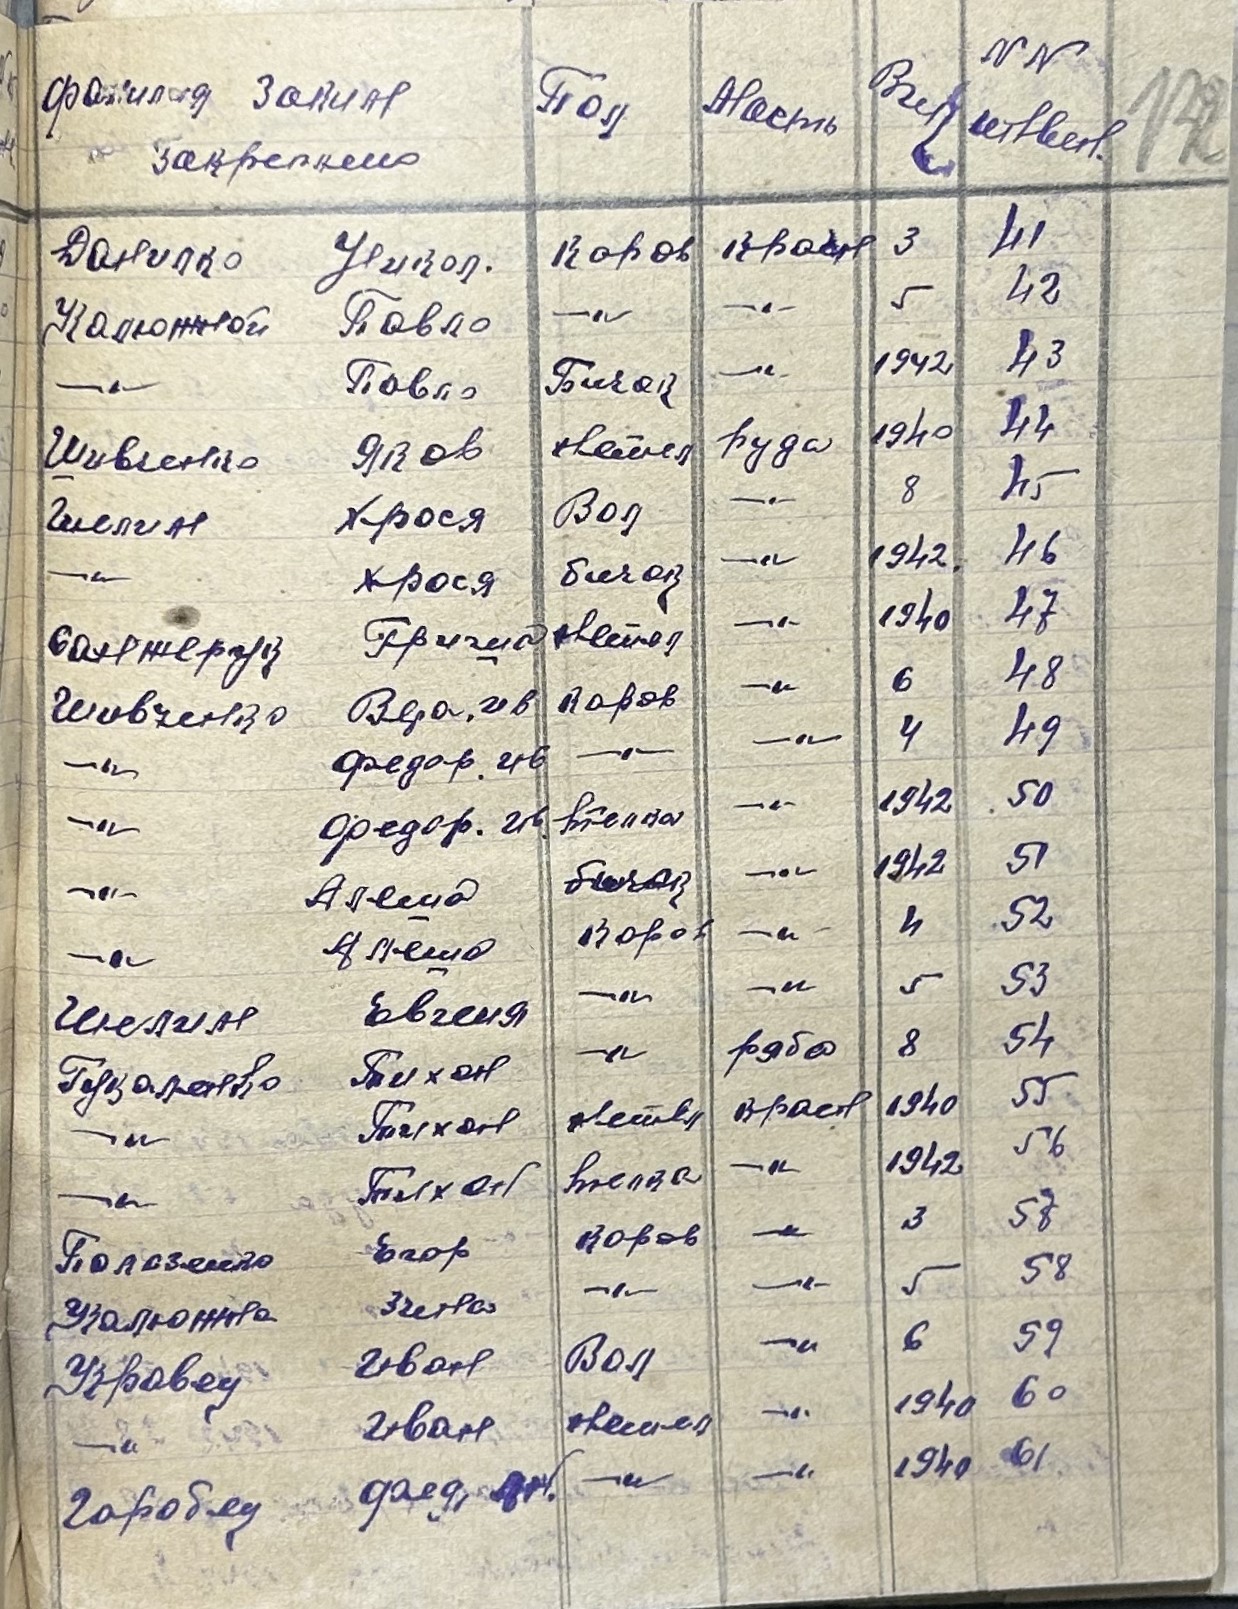 Фамилия За ким №№
закреплено Пол Масть Вік инвент. 132
Данилко Никол. Коров Красн 3 41
Калюжной Павло —"— —"— 5 42
—"— Павло Бичок —"— 1942 43
Шивченко Яков нетел руда 1940 44
Шелин Хрося Вол —"— 8 45
—"— Хрося бичок —"— 1942. 46
Санжерук Григша нетел —"— 1940 47
Шивченко ив коров —"— 6 48
—"— Федор. ив —"— —"— 4 49
—"— Федор. ив. телка —"— 1942 50
—"— Алеша бичок —"— 1942 51
—"— Алеша Коров —"— 4 52
Шелин Евгения —"— —"— 5 53
Гукаленко Тихон —"— ряба 8 54
—"— Тихон нетел красн 1940 55
—"— Тихон телка —"— 1942 56
Полозенко Егор коров —"— 3 57
Калюжна Зина —"— —"— 5 58
Кравец Иван Вол —"— 6 59
—"— Иван нетел —"— 1940 60
Горобец Фед. —"— —"— 1940 61